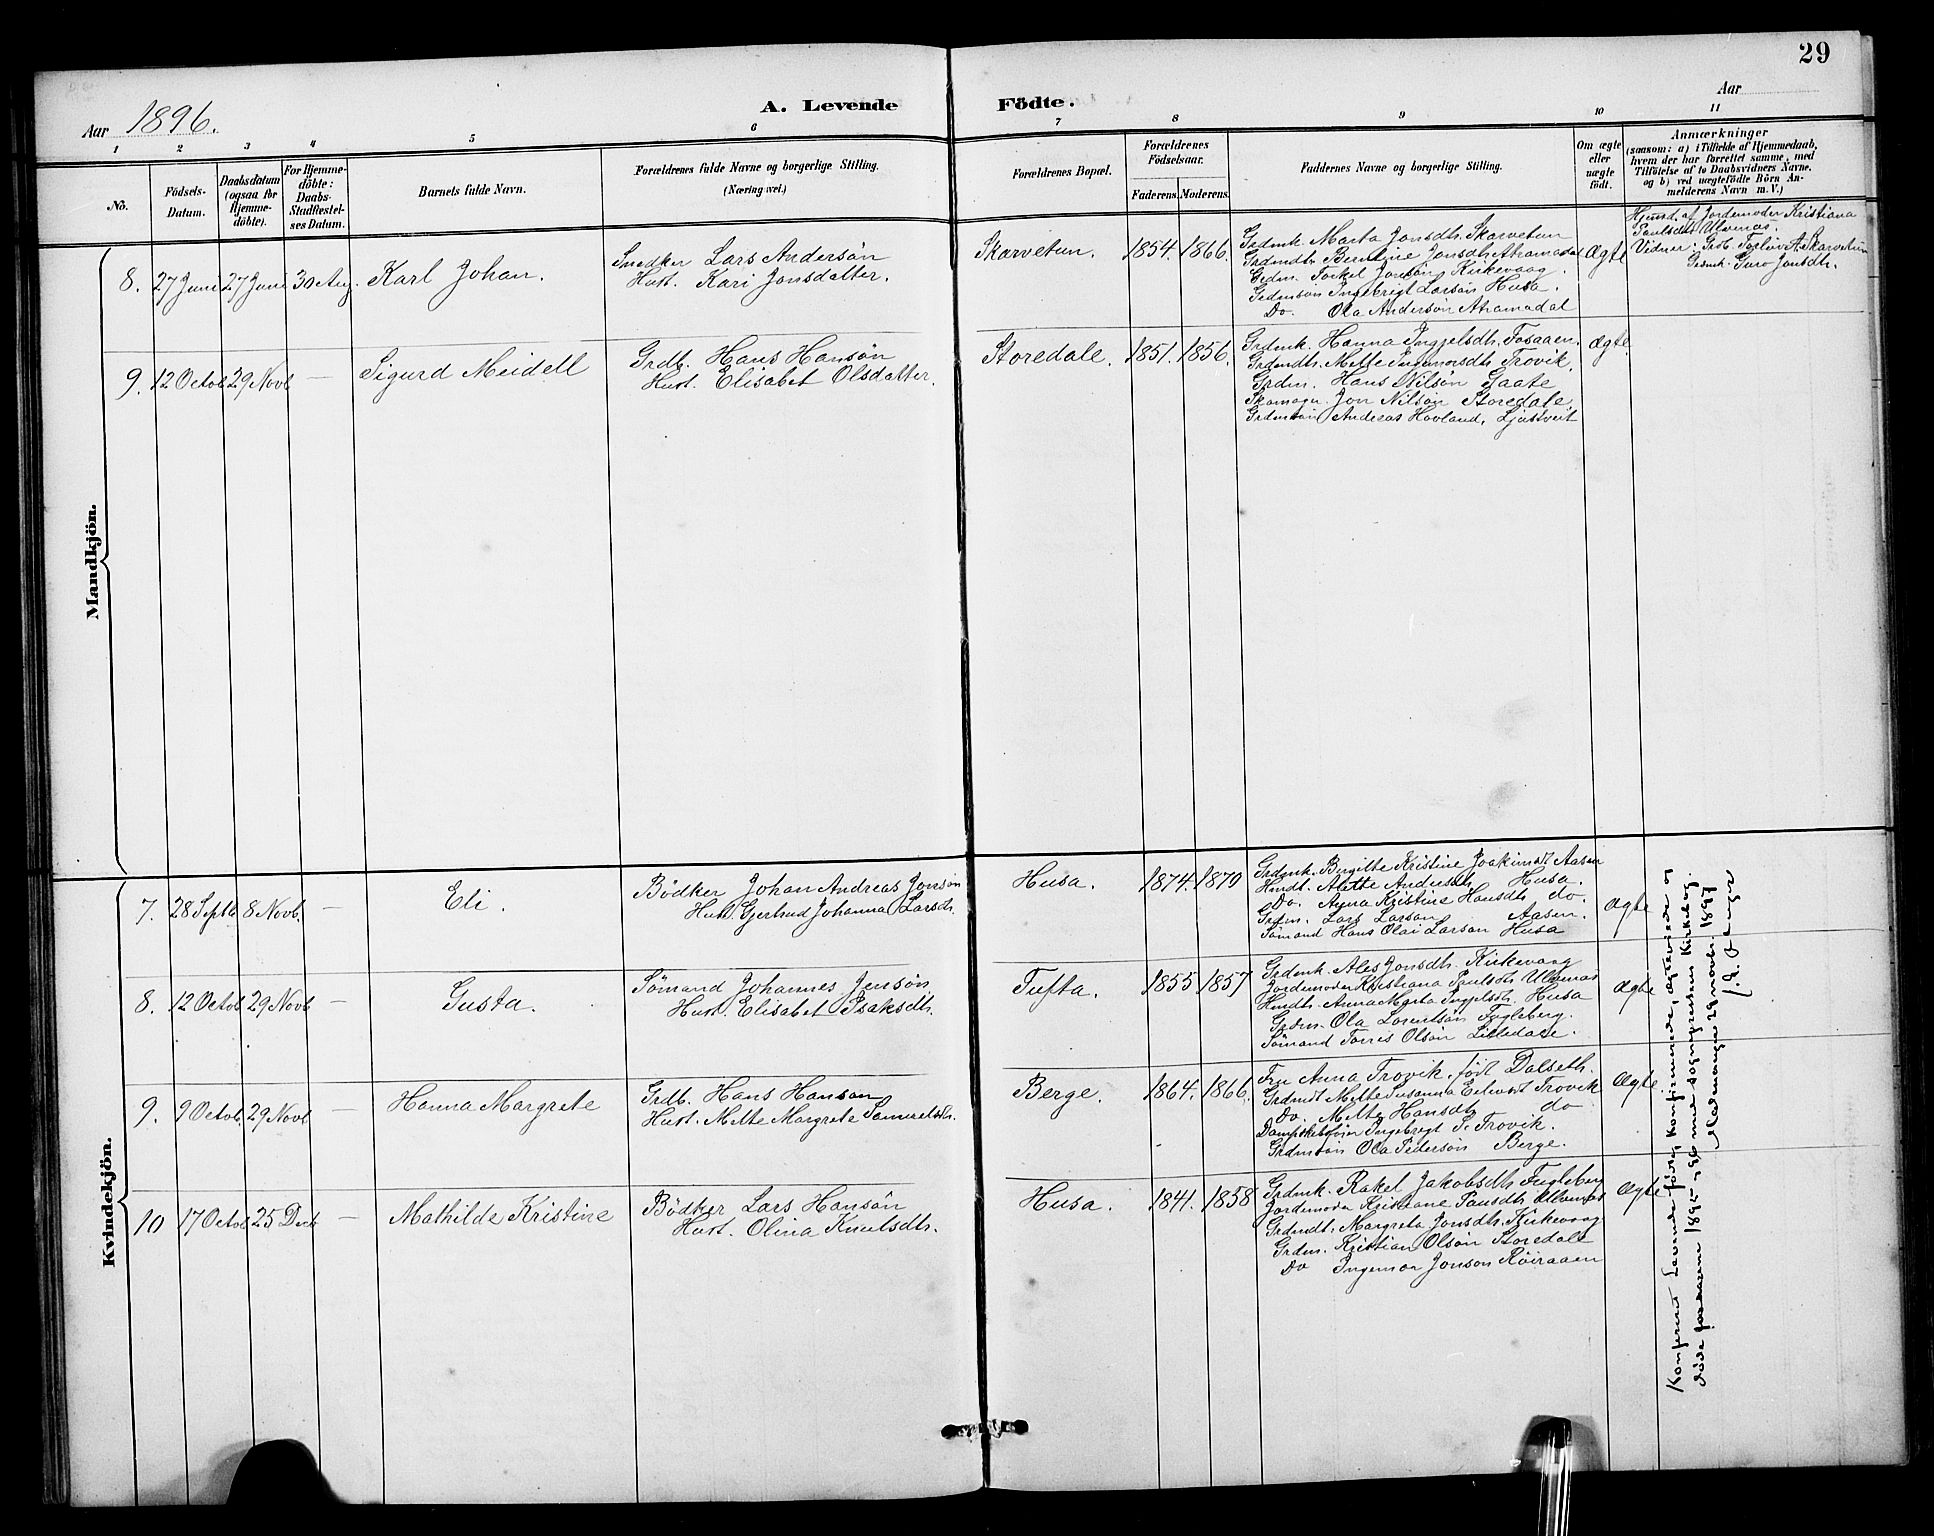 29
Aar 1896.
A. Levende Födte.
Aar
1 2 3 4 5 6 7 8 9 10 11
No.
Födsels-Datum.
Daabsdatum (ogsaa for Hjemme-döbte).
For Hjemme-döbte: Daabs-Stadfæstel-ses Datum.
Barnets fulde Navn.
Forældrenes fulde Navne og borgerlige Stilling.
(Næringsvei.)
Forældrenes Bopæl.
Forældrenes Födselsaar.
Faderens. Moderens.
Faddernes Navne og borgerlige Stilling.
Om ægte eller uægte födt.
Anmærkninger
(saasom: a) i Tilfælde af Hjemmedaab,
hvem der har forrettet samme, med
Tilföielse af to Daabsvidners Navne,
og b) ved uægtefödte Börn An-
melderens Navn m. V.)
Mandkjön.
8. 27 Juni 27 Juni 30 Aug. Karl Johan.
Snedker Lars Andersön
Hust. Kari Jonsdatter.
Skarvetun 1854. 1866.
Grdmk. Marta Jonsdtr. Skarvetun
Grdmdtr. Berntine Jonsdtr. Atramadal
Grdm. Torkel Jonsöng Kirkevaag.
Grdmsön Ingebrigt Larsön Husa.
Do. Ola Andersön Atramadal
Ægte
Hjmd. af Jordemoder Kristiana
Paulsdtr Ulvenas.
Vidner: Grdb. Torlöv A. Skarvetun
Grdmk. Guro Jonsdtr.
9. 12 Octob 29 Novb — Sigurd Meidell
Grdb. Hans Hansön
Hust. Elisabet Olsdatter.
Storedale. 1851. 1856.
Grdmk. Hanna Ingjelsdtr. Fosaaen.
Grdmdtr. Mette Ingemorsdtr. Trovik.
Grdm. Hans Nilsön Gaate
Skomager. Jon Nilsön Storedale
Grdmsön Andreas Hovland, Ljustveit
Ægte
Kvindekjön.
7. 28 Septb 8 Novb. — Eli.
Bödker Johan Andreas Jonsön
Hust. Gjertrud Johanna Larsdtr.
Husa. 1874. 1879
Grdmk. Birgitte Kristine Joakimsdt Aasen
Hmdt. Alette Andersdtr Husa.
Do. Anna Kristine Hansdtr do.
Grdm. Lars Larson Aasen.
Sömand Hans Olai Larson Husa
Ægte
8. 12 Octob. 29 Novb — Gusta.
Sömand Johannes Jensön
Hust. Elisabet Isaksdtr.
Tufta. 1855 1857
Grdmk. Ales Jonsdtr. Kirkevaag
Jordemoder Kristiana Paulsdtr Ulvenas
Hmdtr. Anna Marta Ingjelsdtr. Husa
Grdm. Ola Lorentsön Fugleberg.
Sömand Torris Olsön Lilledale.
Ægte
9. 9 Octob. 29 Novb — Hanna Margrete
Grdb. Hans Hanson
Hust. Mette Margrete Samuelsdtr.
Berge. 1864. 1866.
Fru Anna Trovik, født Dalseth.
Grdmdt Mette Susanna Eelvart Trovik
Do. Mette Hansdtr do
Ingebregt S. Trovik.
Grdmsön Ola Pedersön Berge.
Ægte
10 17 Octob 25 Decb — Mathilde Kristine
Bödker Lars Hansön
Hust. Olina Knutsdtr.
Husa. 1841. 1858
Grdmk. Rakel Jakobsdtr Fugleberg
Jordemoder Kristiane Paulsdtr Ulvenas
Grdmdtr. Margreta Jonsdtr. Kirkevaag
Grdm. Kristian Olsön Storedale
Do Ingemor Jonson Röiraaen
Ægte
Konfereret Levende fødte, konfirmerede, ægteviede og
døde for aarene 1895 og 96 med sogneprestens Kirkebog.
29 novbr. 1897